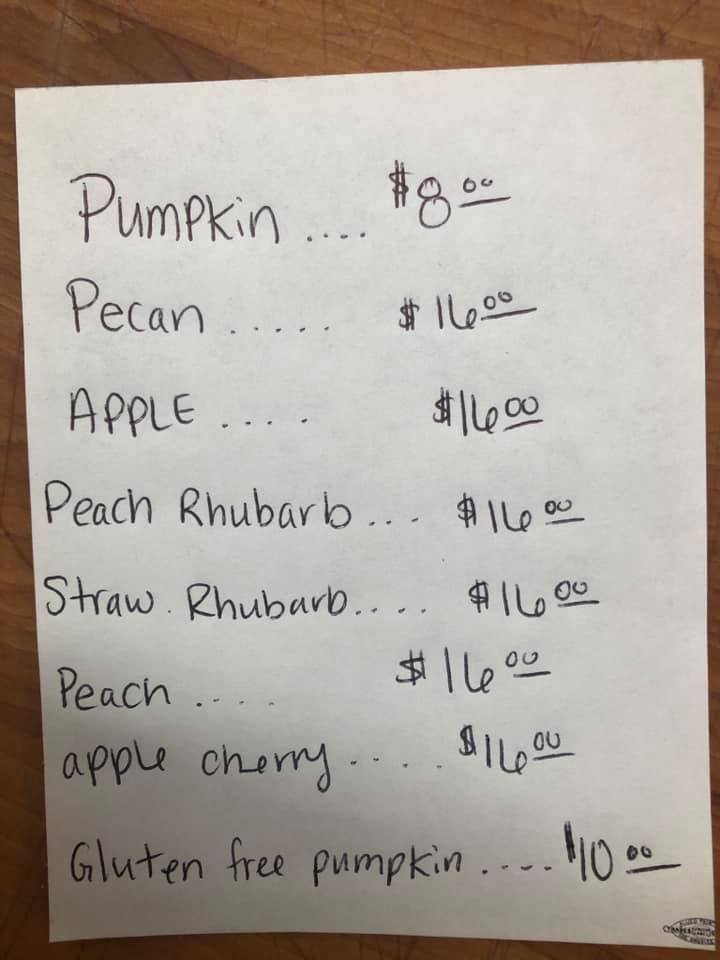 Pumpkin .... $8.00
Pecan ..... $16.00
APPLE .... $16.00
Peach Rhubarb... $16.00
Straw. Rhubarb.... $16.00
Peach .... $16.00
apple cherry .... $16.00
Gluten free pumpkin .... $10.00